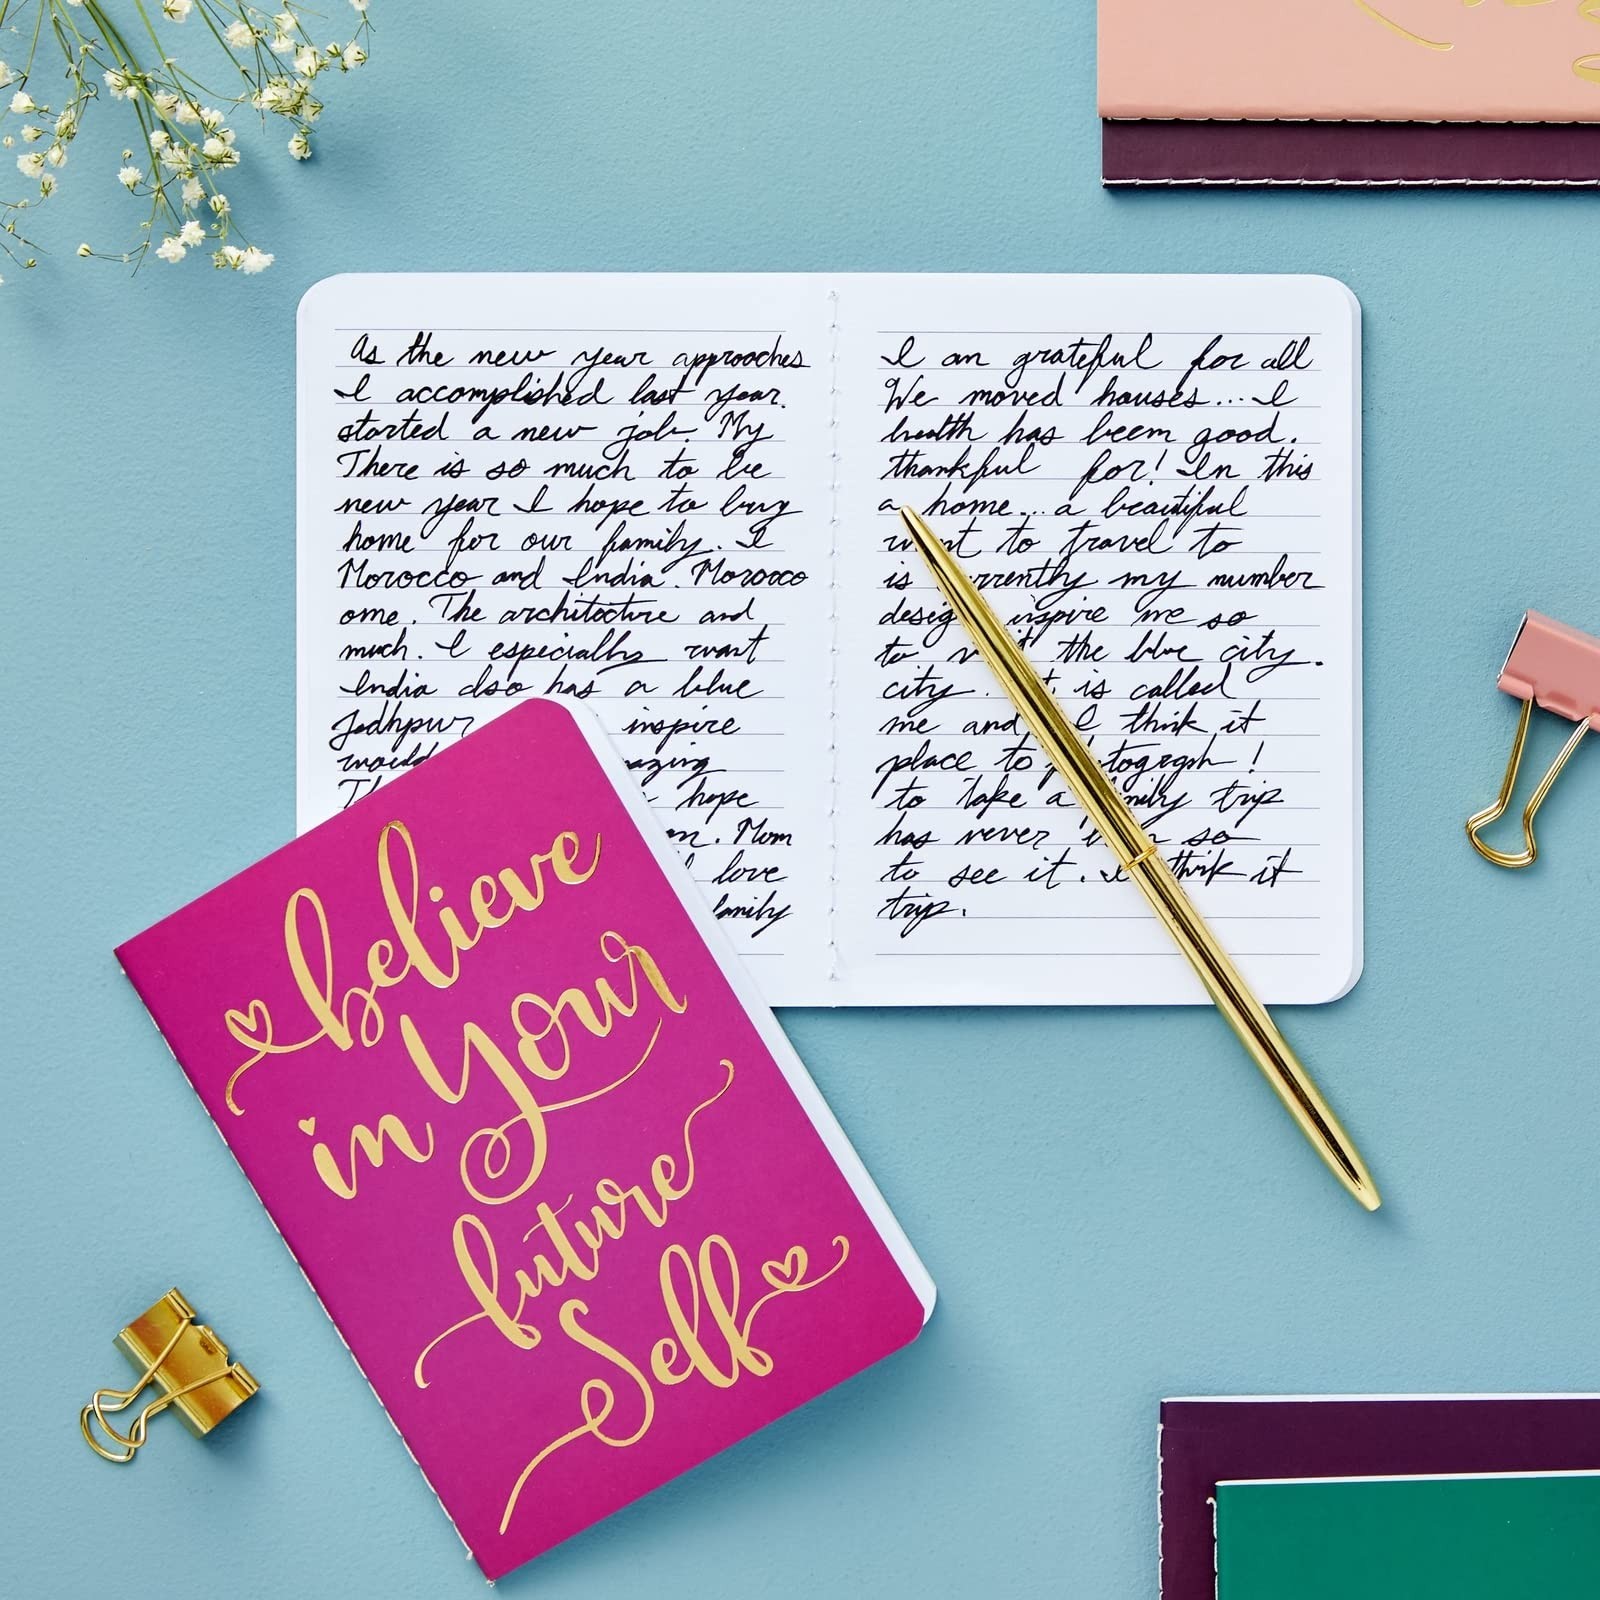 As the new year approaches
I accomplished last year.
started a new job. My
There is so much to be
new year I hope to buy
home for our family. I
Morocco and India. Morocco
ome. The architecture and
much. I especially want
India also has a blue
Jodhpur inspire
would
hope
Mom
love
family
I am grateful for all
We moved houses... I
health has been good.
thankful for! In this
a home... a beautiful
want to travel to
is my number
inspire me so
to the blue city.
city. is called
me and I think it
place to !
to take a trip
has never so
to see it. I think it
trip.
believe
in Your
future
Self